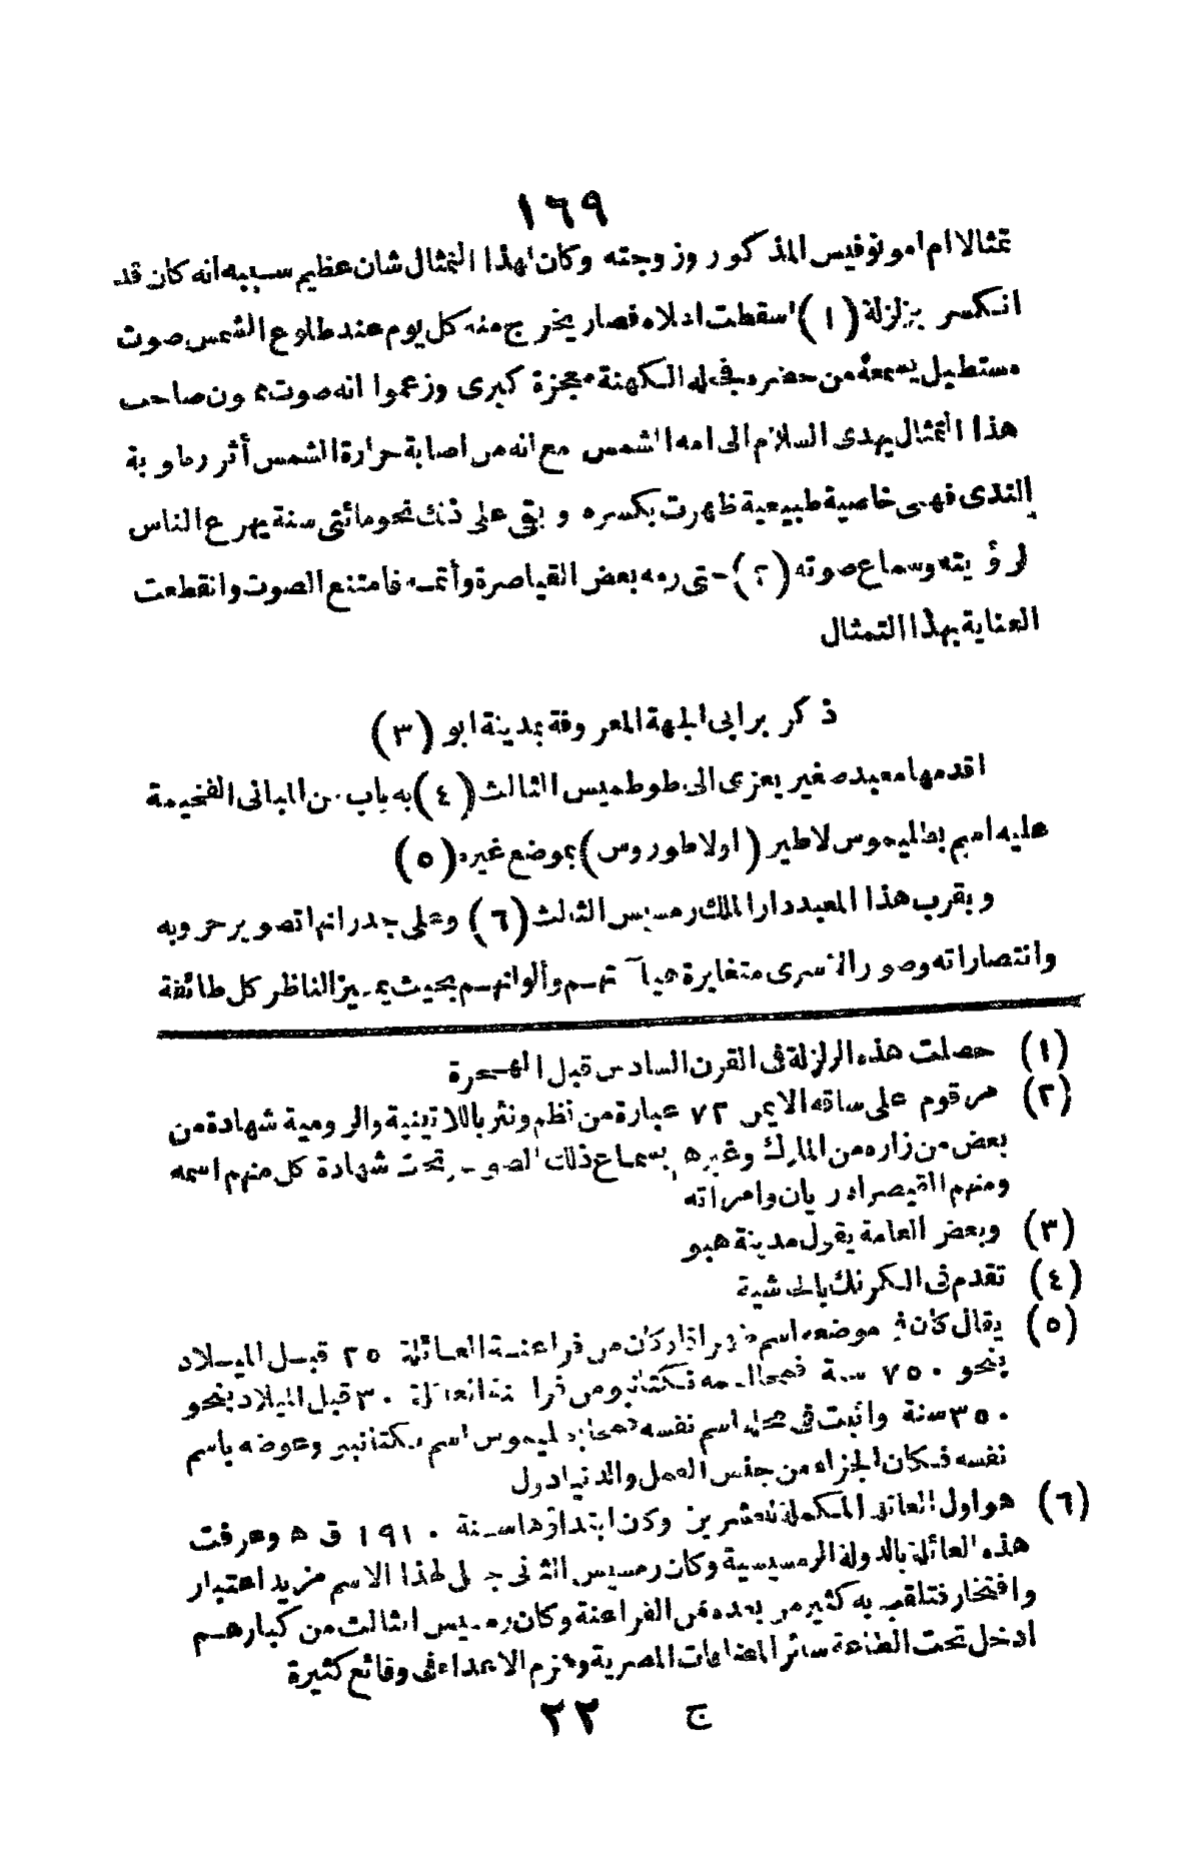 ١٦٩
تمثالا ام امونوفيس المذكور وزوجته وكان لهذا التمثال شان عظيم سببه انه كان قد
انكسر بزلزلة (١) اسقطت اعلاه فصار يخرج منه كل يوم عند طلوع الشمس صوت
مستطيل يسمعه من حضره فجعله الكهنة معجزة كبرى وزعموا انه صوت ممنون صاحب
هذا التمثال يهدى السلام الى امه الشمس مع انه من اصابة حرارة الشمس أثر رطوبة
الندى فهى خاصية طبيعية ظهرت بكسره وبقى على ذلك نحو مائتى سنة يهرع الناس
لرؤيته وسماع صوته (٢) حتى رمه بعض القياصرة وأتمه فامتنع الصوت وانقطعت
العناية بهذا التمثال
ذكر برابى الجهة المعروفة بمدينة ابو (٣)
اقدمها معبد صغير يعزى الى طوطميس الثالث (٤) به باب من المبانى الفخيمة
عليه اسم بطليموس لاطير (اولاطوروس) بموضع غيره (٥)
وبقرب هذا المعبد دار الملك رمسيس الثالث (٦) وعلى جدرانها تصوير حروبه
وانتصاراته وصور الاسرى متغايرة هيآتهم وألوانهم بحيث يميز الناظر كل طائفة
(١) حصلت هذه الزلزلة فى القرن السادس قبل الهجرة
(٢) مرقوم على ساقه الايمن ٧٢ عبارة من نظم ونثر باللاتينية والرومية شهادة من
بعض من زاره من الملوك وغيرهم بسماع ذلك الصوت وتحت شهادة كل منهم اسمه
ومنهم القيصر ادريان وامراته
(٣) وبعض العامة يقول مدينة هبو
(٤) تقدم فى الكرنك بالحاشية
(٥) يقال كان فى موضعه اسم طهراقا وكان من فراعنة العائلة ٢٥ قبل الميلاد
بنحو ٧٥٠ سنة فمحا اسمه نكتانبو من فراعنة العائلة ٣٠ قبل الميلاد بنحو
٣٥٠ سنة واثبت فى محله اسم نفسه فمحا بطليموس اسم نكتانبو وعوضه باسم
نفسه فكان الجزاء من جنس العمل والدنيا دول
(٦) هو اول العائلة المكملة للعشرين وكان ابتداؤها سنة ١٩١٠ ق ه وعرفت
هذه العائلة بالدولة الرمسيسية وكان رمسيس الثانى جعل لهذا الاسم مزيد اعتبار
وافتخار فتلقب به كثير من بعده من الفراعنة وكان رمسيس الثالث من كبارهم
ادخل تحت الطاعة سائر المقاطعات المصرية وهزم الاعداء فى وقائع كثيرة
ج ٢٢